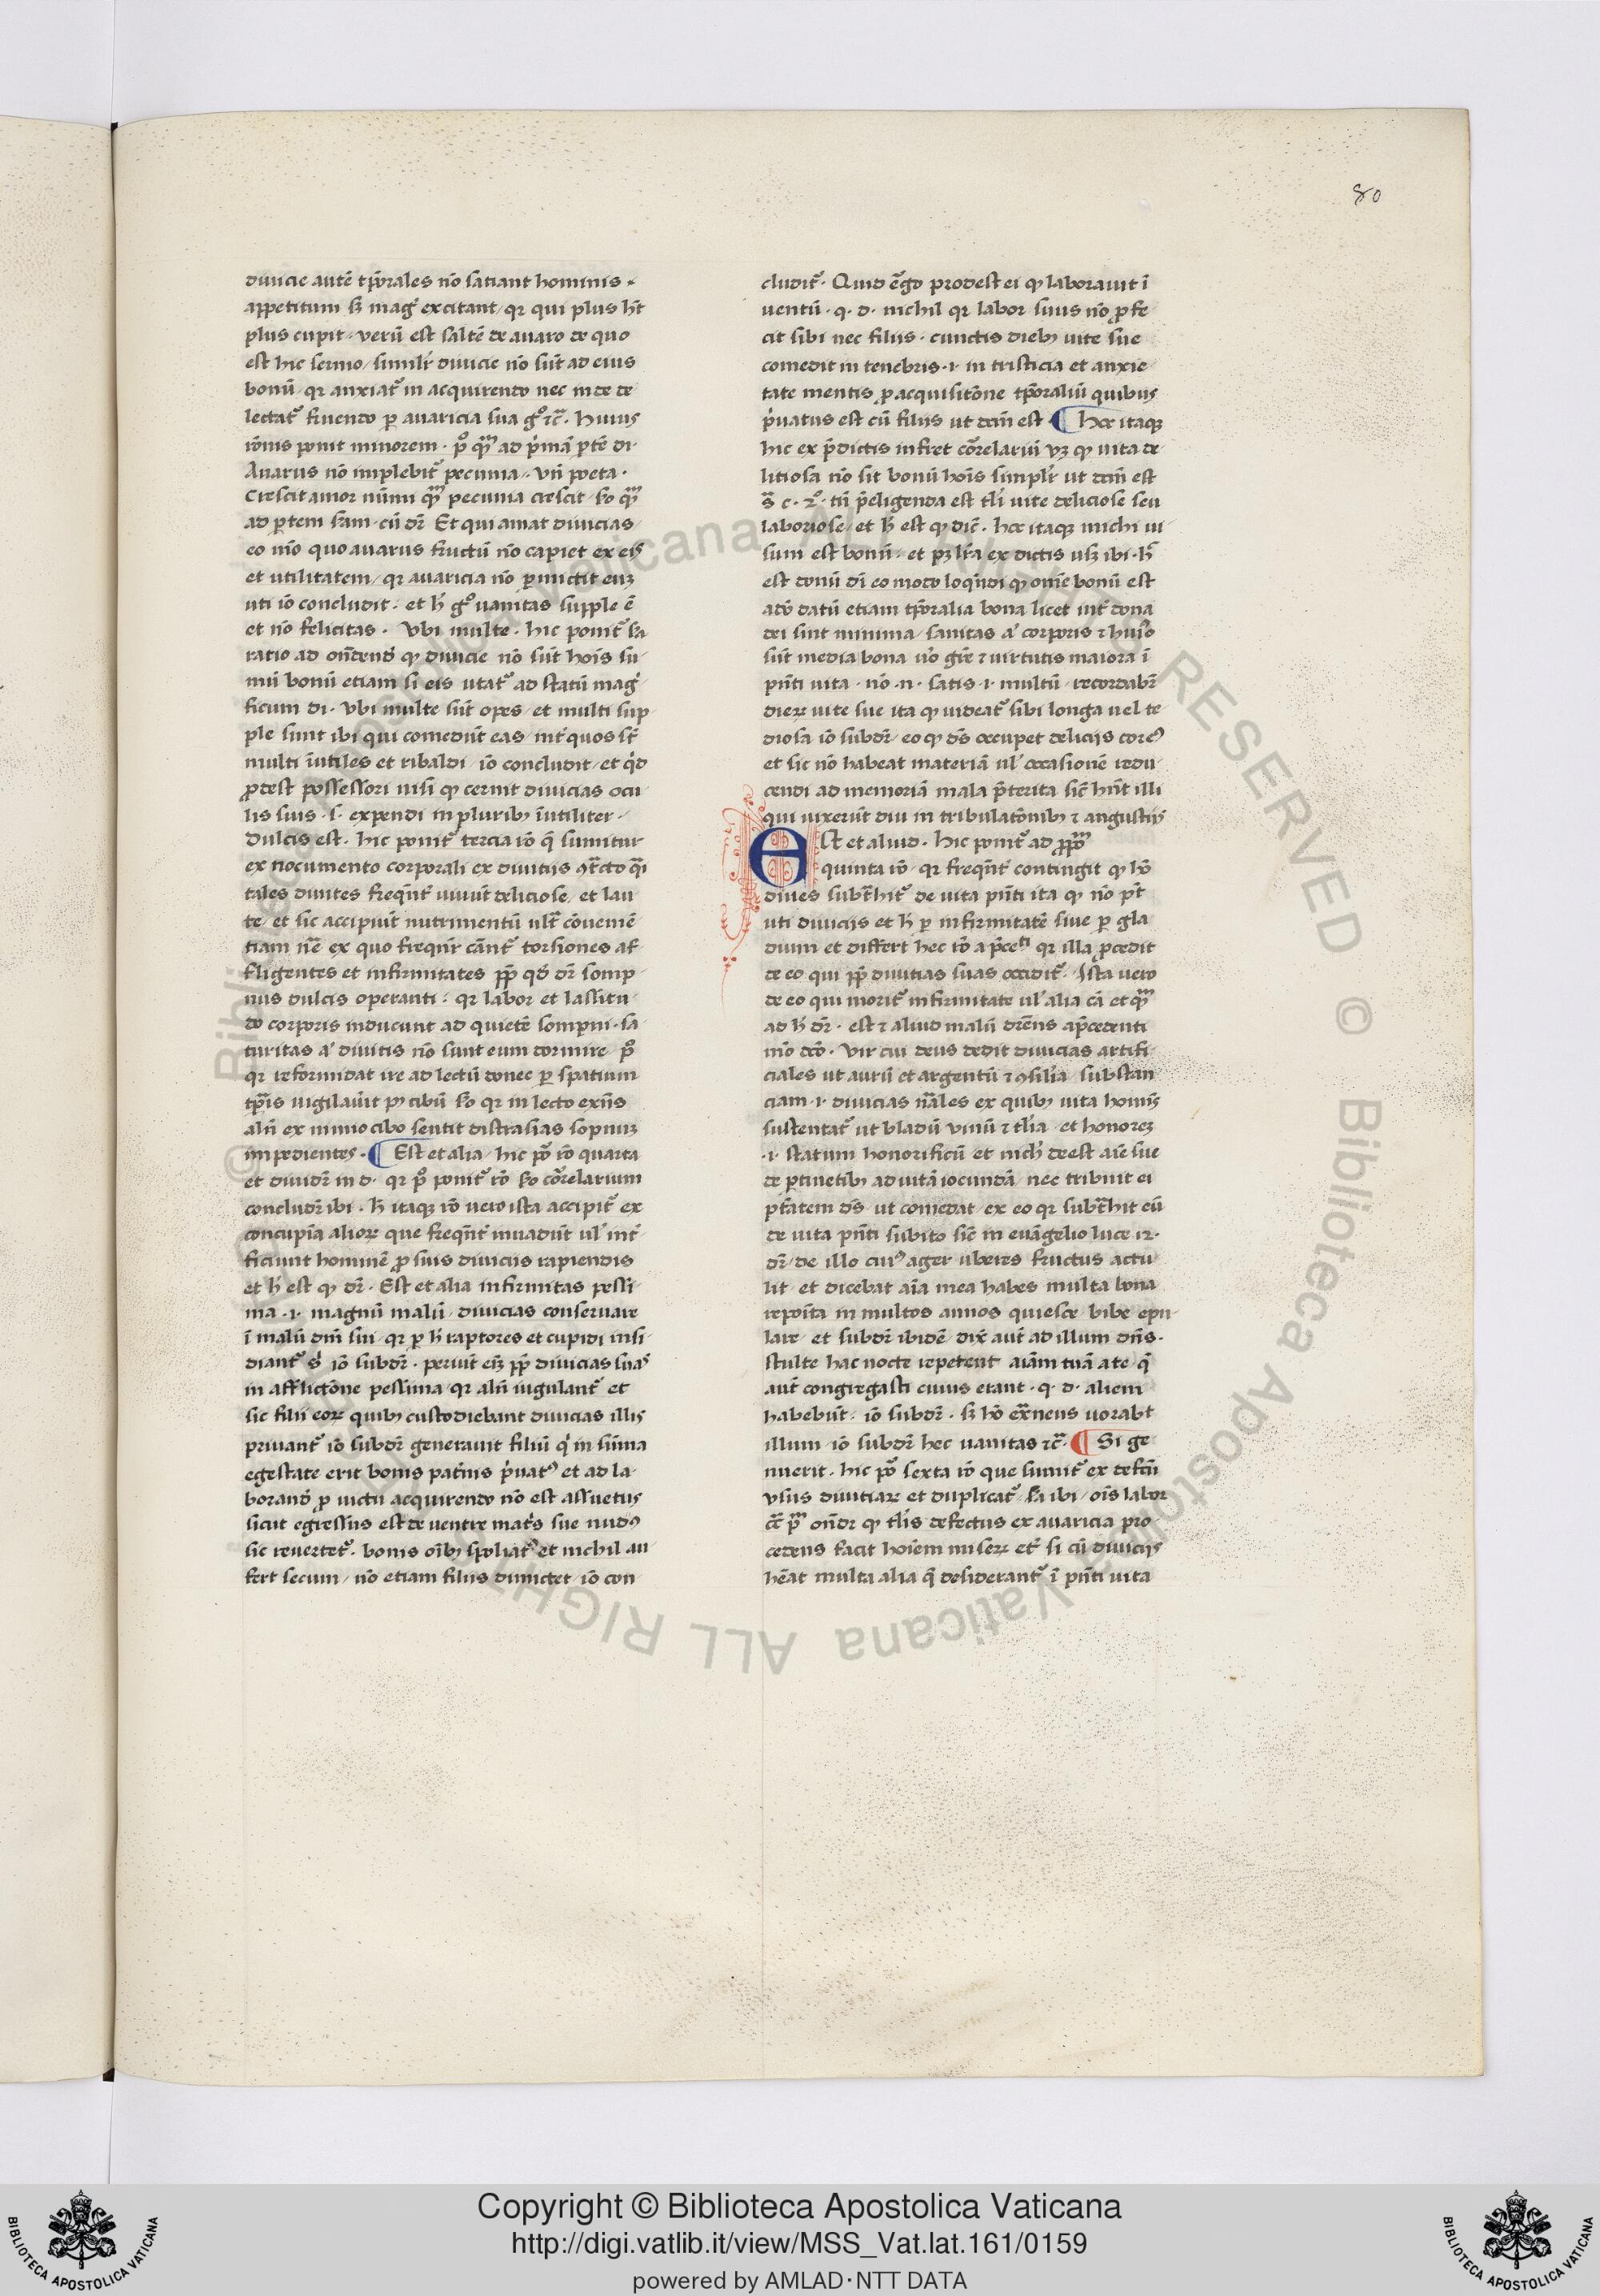 80
diuicie autē tp̄orales nō satiant hominis
appetitum sꝫ mag̛ excitant / qꝛ qui plus hn̄t
plus cupit · verū est saltē de auaro de quo
est hic sermo / simil̛r diuicie nō sūt ad eius
bonū / qꝛ anxiat᷑ in acquirendo nec inde de
lectat᷑ fruendo ꝑ auaricia sua gͦ ⁊c̄ · Huius
rōnis ponit minorem · pͦ qͣꝫ ad p̛mā ꝑtē di·
Auarus nō implebit᷑ pecunia · Vn̄ poeta ·
Crescit amor nūmi qͣꝫ pecunia crescit · so qͣꝫ
ad ꝑtem sam · cū dr̄ Et qui amat diuicias /
eo mō quo auarus fructū nō capiet ex eis
et utilitatem / qꝛ auaricia nō ꝑmictit euꝫ
uti iō concludit · et h̄ gͦ uanitas supple ē
et nō felicitas · Vbi multe · hic ponit᷑ sa
ratio ad on̄dendū ꝙ diuicie nō sūt hoīs su
mū bonū etiam si eis utat᷑ ad statū mag̛
ficum di · Vbi multe sūt opes / et multi sup
ple sunt ibi qui comedūt eas / int̛ quos st̄
multi īutiles et ribaldi / iō concludit / et qͥd
ꝓdest possessori nisi ꝙ cernit diuicias ocu
lis suis · s · expendi in pluribꝫ īutiliter ·
Dulcis est · hic ponit᷑ tercia rō q̄ sumitur
ex nocumento corporali ex diuitiis ꝯt̄cto qͣi
tales diuites freqn̄t᷑ uiuūt deliciose / et lau
te / et sic accipiūt nutrimentū ult̄ cōueniē
tiam nāe ex quo freqn̄r cān̄t᷑ torsiones af
fligentes et infirmitates ꝓp̄ qd̄ dr̄ somp
nus dulcis operanti · qꝛ labor et lassitu
do corporis inducunt ad quietē sompni · sa
turitas a̛ diuitis nō sunt eum dormire / pͦ
qꝛ reformidat ire ad lectū donec ꝑ spatium
tp̄is uigilauīt pꝰ cibū so qꝛ in lecto exn̄s
aln̄ ex nimio cibo sentit distrasias sopnuꝫ
impedientes · ¶ Est et alia / hic pōͭ rō quarta
et diuidr̄ in d · qꝛ pͦ ponit᷑ rō so cor̄relarium
concludr̄ ibi · h̄ itaqꝫ rō uero ista accipit᷑ ex
concupīa alioꝝ que freqn̄t᷑ inuadūt ul̛ int̛
ficiunt hominē ꝓ suis diuiciis rapiendis
et h̄ est ꝙ dr̄ · Est et alia infirmitas pessi
ma · i · magnū malū / diuicias conseruate
ī malū dn̄i sui / qꝛ ꝑ h̄ raptores et cupidi insi
diant᷑ s̛ iō subdr̄ · pereūt eīꝫ ꝓp̄ diuicias suas
in afflictōne pessima / qꝛ aln̄ iugulant᷑ et
sic filii eoꝝ quibꝫ custodiebant diuicias illis
priuant᷑ iō subdr̄ generauit filiū qͥ in sūma
egestate erit bonis pat̛nis p̛uatꝰ et ad la
borand̄ ꝓ uictu acquirendo nō est assuetus
sicut egressus est de uentre mat̛s sue nudꝰ
sic reuertet᷑ · bonis oībꝫ spoliatꝰ et nichil au
fert secum / nō etiam filiis dimictet / iō con
cludit᷑ · Quid ēgo prodest ei ꝙ laborauit ī
uentū · q · d · nichil qꝛ labor suus nō ꝓfe
cit sibi nec filiis · cunctis diebꝫ uite sue
comedit in tenebris · i · in tristicia et anxie
tate mentis ꝓ acquisitōne tp̄oraliū quibus
p̛uatus est cū filiis ut dcm̄ est ¶ Hoc itaqꝫ
hic ex p̄dictis infret cor̄relariū vꝫ ꝙ uita de
litiosa nō sit bonū hoīs simpl̛r ut dcm̄ est
s̄ c · 2ͦ · tn̄ p̄eligenda est tl̛i uite deliciose seu
laboriose / et h̄ est ꝙ dic̄ · hoc itaqꝫ michi ui
sum est bonū · et pꝫ lr̄a ex dictis usꝫ ibi · h̄
est donū di eo modo loqn̄di ꝙ om̄e bonū est
a dō datū etiam tp̄oralia bona licet int̛ dona
dei sint minima / sanitas a̛ corporis ⁊ huiͦ
sūt media bona uͦ gr̄e ⁊ uirtutis maiora ī
pn̄ti uita · nō · n · satis · i · multū · recordabr̄
dieꝝ uite sue ita ꝙ uideat᷑ sibi longa uel te
diosa iō subdr̄ / eo ꝙ ds̄ occupet deliciis cor eiꝰ
et sic nō habeat materiā ul̛ occasionē redu
cendi ad memoriā mala p̄terita sic̄ hn̄t illi
qui uixerūt diu in tribulatōnibꝫ ⁊ angustiis
Est et aliud · hic ponit᷑ ad ꝓpͦͫ
quinta rō · qꝛ freqn̄t᷑ contingit ꝙ hō
diues subt̄hit᷑ de uita pn̄ti ita ꝙ nō pt̄
uti diuiciis et h̄ ꝑ infirmitatē siue ꝑ gla
dium et differt hec rō a p̄ceti qꝛ illa ꝓcedit
de eo qui ꝓp̄ diuitias suas occidit᷑ · Ista uero
de eo qui morit᷑ infirmitate ul̛ alia cā et qͣꝫ
ad h̄ dr̄ · est ⁊ aliud malū dr̄ens a p̄cedenti
mō dcō · Vir cui deus dedit diuicias artifi
ciales ut aurū et argentū ⁊ ꝯsil̛ia / substan
ciam · i · diuicias nāles ex quibꝫ uita hominis
sustentat᷑ ut bladū uinū ⁊ tl̛ia · et honoreꝫ
· i · statum honorificū et nich̛ deest aīe sue
de ꝑtinētibꝫ ad uitā iocundā / nec tribuit ei
pt̄atem ds̄ · ut comedat / ex eo qꝛ subt̄hit eū
de uita pn̄ti subito sic̄ in euāngelio luce 12 ·
dr̄ / de illo cuiꝰ ager uberes fructus actu
lit · et dicebat aīa mea habes multa bona
reposita in multos annos quiesce · bibe epu
lare · et subdr̄ ibidē / dix̄ aūt ad illum dn̄s ·
stulte hac nocte repetent aīam tuā a te / q̄
aūt congregasti cuius erant · q · d · alieni
habebūt · iō subdr̄ · sꝫ hō ex̄neus uorabt
illum · iō subdr̄ hec uanitas ⁊c̄ · ¶ Si ge
nuerit · hic pōͭ sexta rō que sumit᷑ ex defcū
usus diuitiaꝝ et duplicat᷑ / sa ibi / oīs labor
cc̄ pͣꝫ on̄dr ꝙ tl̛is defectus ex auaricia pro
cedens facit hoīem miseꝝ et̛ si cū diuiciis
hēat multa alia q̄ desiderant᷑ ī pn̄ti uita
Copyright © Biblioteca Apostolica Vaticana
http://digi.vatlib.it/view/MSS_Vat.lat.161/0159
powered by AMLAD·NTT DATA
BIBLIOTECA APOSTOLICA VATICANA
BIBLIOTECA APOSTOLICA VATICANA
© Biblioteca Apostolica Vaticana ALL RIGHTS RESERVED © Biblioteca Apostolica Vaticana ALL RIGHTS RESERVED